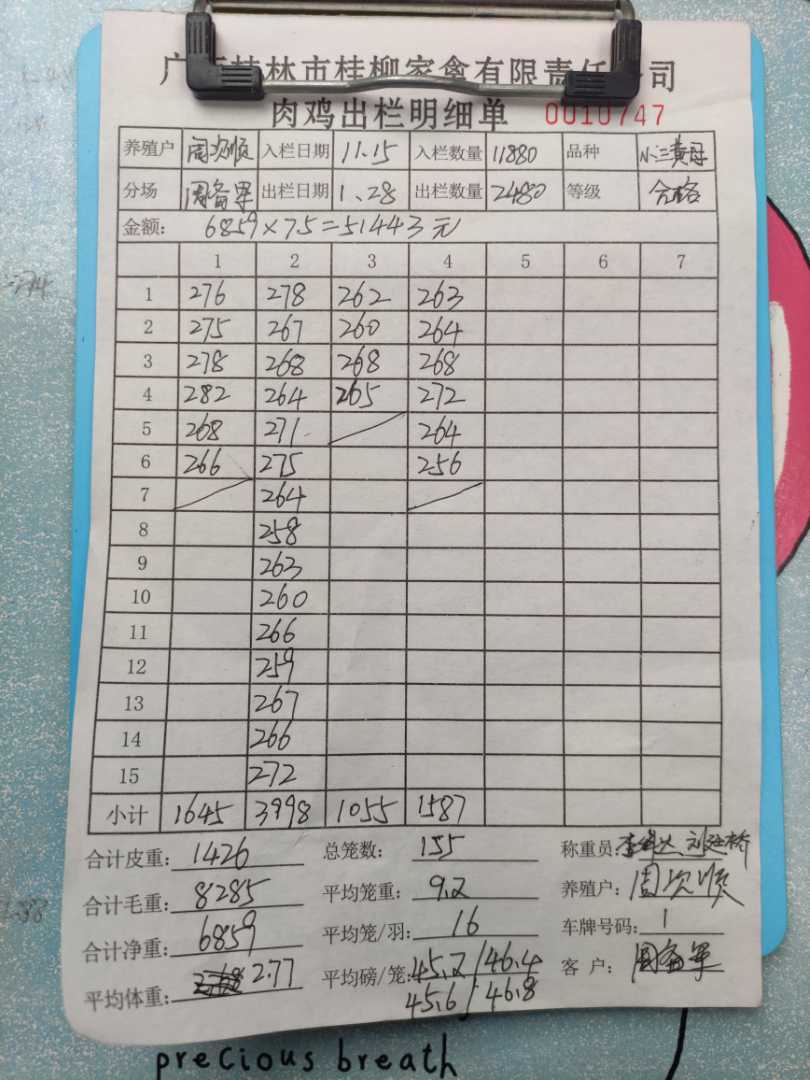 广西桂林市桂柳家禽有限责任公司
肉鸡出栏明细单 0010747
养殖户 周次顺 入栏日期 11.15 入栏数量 11880 品种 小三黄母
分场 周备军 出栏日期 1.28 出栏数量 2480 等级 合格
金额: 6859×7.5=51443元
1 2 3 4 5 6 7
1 276 278 262 263
2 275 267 260 264
3 278 268 268 268
4 282 264 265 272
5 268 271 264
6 266 275 256
7 264
8 258
9 263
10 260
11 266
12 259
13 267
14 266
15 272
小计 1645 3998 1055 1587
合计皮重: 1426 总笼数: 155 称重员:
合计毛重: 8285 平均笼重: 9.2 养殖户: 周次顺
合计净重: 6859 平均笼/羽: 16 车牌号码: 1
平均体重: 2.77 平均磅/笼: 45.2/46.4 客户: 周备军
45.6/46.8
precious breath